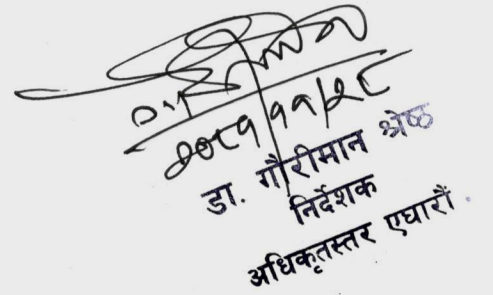 २०८१/११/२८
डा. गौरीमान श्रेष्ठ
निर्देशक
अधिकृतस्तर एघारौं